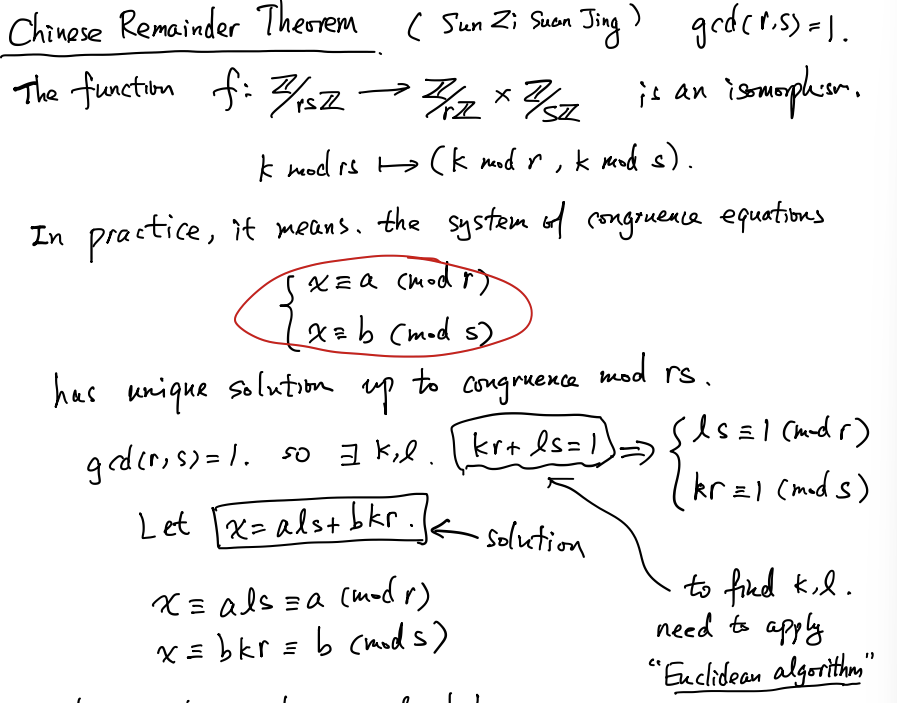 Chinese Remainder Theorem. (Sun Zi Suan Jing) gcd(r,s)=1.
The function f: ℤ/rsℤ ⟶ ℤ/rℤ × ℤ/sℤ is an isomorphism.
k mod rs ⟼ (k mod r, k mod s).
In practice, it means. the system of congruence equations
{ x ≡ a (mod r)
x ≡ b (mod s)
has unique solution up to congruence mod rs.
gcd(r,s)=1. so ∃ k,l. kr+ls=1 ⟹ { ls ≡ 1 (mod r)
kr ≡ 1 (mod s)
Let x = als + bkr. ← solution
x ≡ als ≡ a (mod r)
x ≡ bkr ≡ b (mod s)
to find k,l.
need to apply
"Euclidean algorithm"